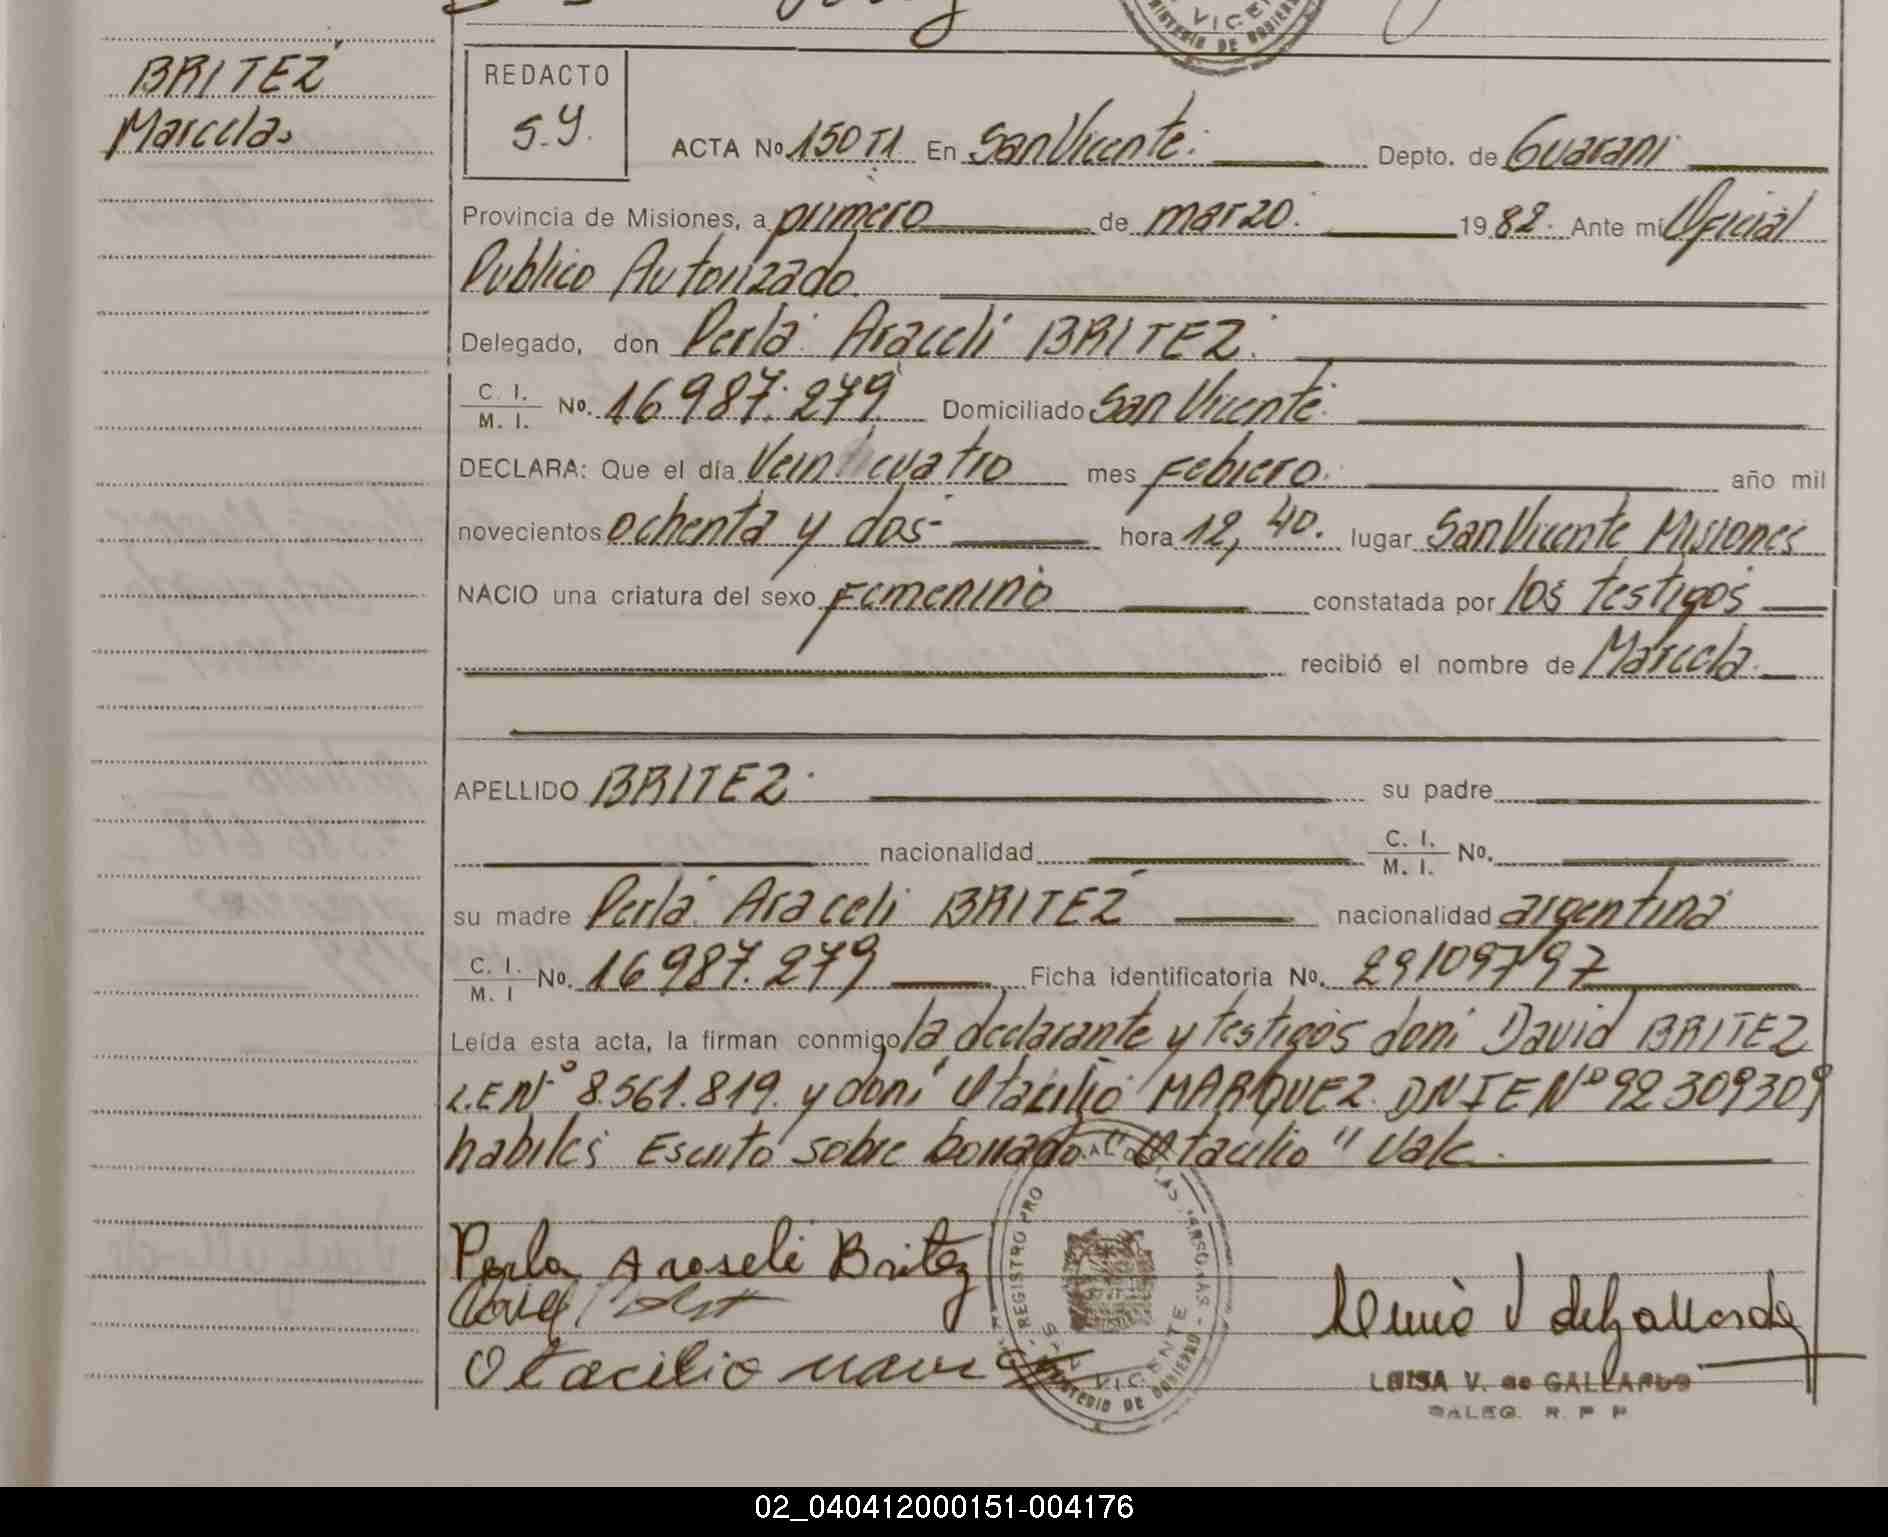 BRITEZ
Marcela
REDACTO
S.Y.
ACTA No 150 T1 En San Vicente. Depto. de Guarani
Provincia de Misiones, a primero de marzo. 1982. Ante mi Oficial
Publico Autorizado
Delegado, don Perla Araceli BRITEZ.
C. I. / M. I. No. 16987.279 Domiciliado San Vicente.
DECLARA: Que el día Veinticuatro mes Febrero. año mil
novecientos ochenta y dos- hora 12,40. lugar San Vicente Misiones
NACIO una criatura del sexo Femenino constatada por los testigos
recibió el nombre de Marcela.
APELLIDO BRITEZ. su padre
nacionalidad C. I. / M. I. No.
su madre Perla Araceli BRITEZ nacionalidad argentina
C. I. / M. I No. 16987.279 Ficha identificatoria No. 29109797
Leída esta acta, la firman conmigo la declarante y testigos doni David BRITEZ
L.E Nº 8.561.819. y doni Otacilio MARQUEZ. DNIE Nº 92309309
habiles Escrito sobre borrado "Otacilio" Vale.
Perla Araseli Britez
Otacilio
REGISTRO PRO
SAN VICENTE
MINISTERIO DE GOBIERNO
LUISA V. de GALLARDO
DALEG. R. P. P.
02_040412000151-004176